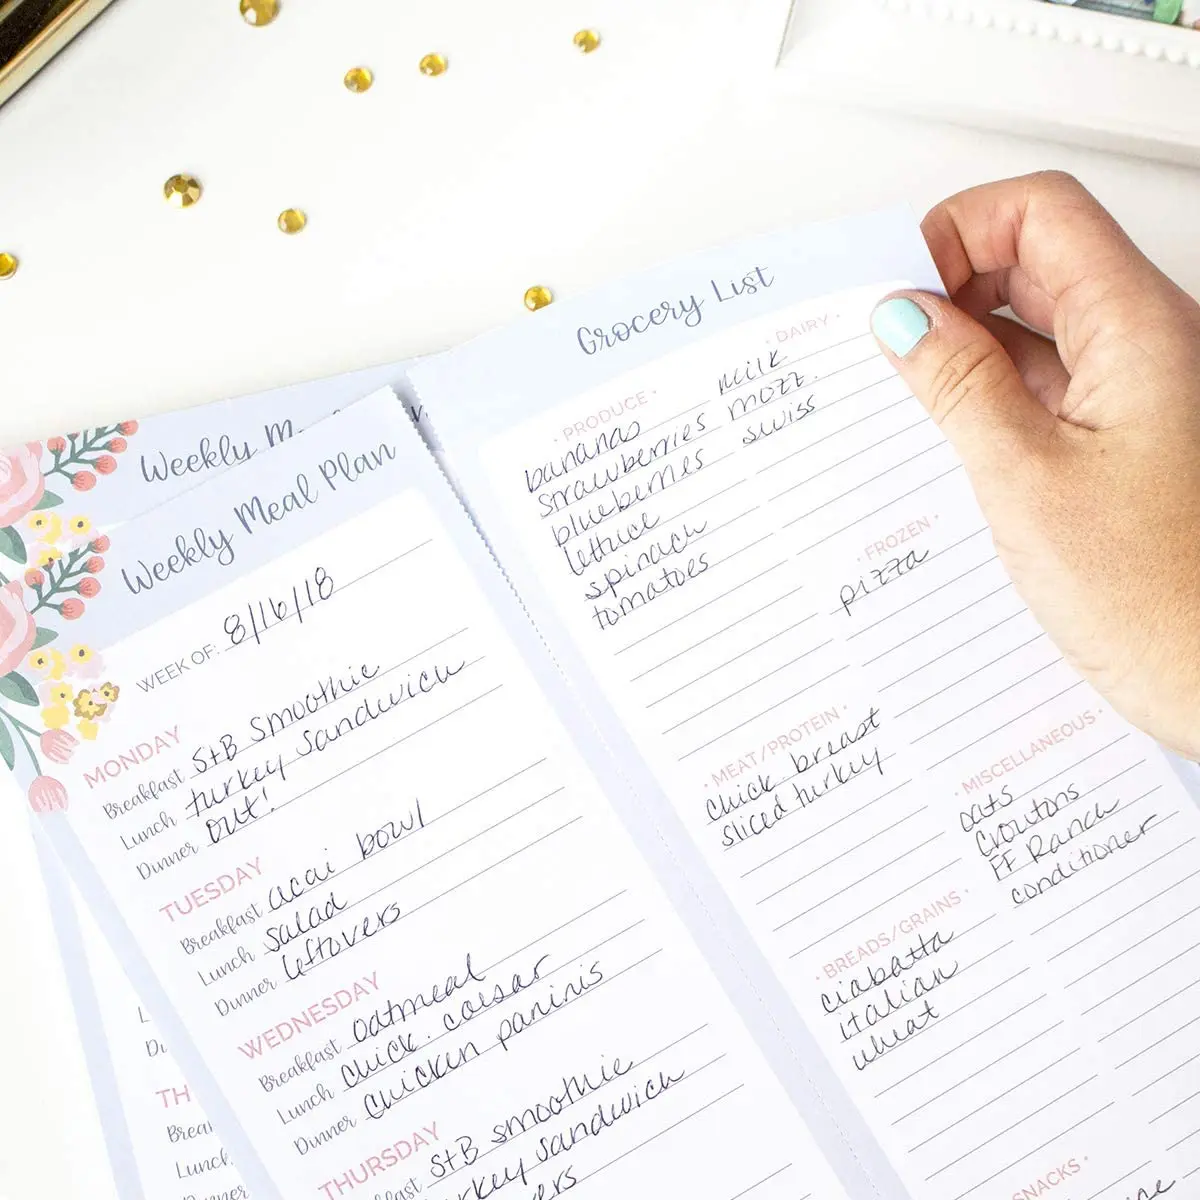 Weekly M
Weekly Meal Plan
WEEK OF: 8/16/18
MONDAY
Breakfast S+B smoothie
Lunch turkey sandwich
Dinner out!
TUESDAY
Breakfast acai bowl
Lunch salad
Dinner leftovers
WEDNESDAY
Breakfast oatmeal
Lunch chick. caesar
Dinner chicken paninis
THURSDAY
S+B smoothie
sandwich
Grocery List
· PRODUCE ·
bananas
strawberries
blueberries
lettuce
spinach
tomatoes
· DAIRY ·
milk
mozz.
swiss
· FROZEN ·
pizza
· MEAT/PROTEIN ·
chick. breast
sliced turkey
· MISCELLANEOUS ·
oats
croutons
FF Ranch
conditioner
· BREADS/GRAINS ·
ciabatta
italian
wheat
SNACKS ·
TH
Lunch